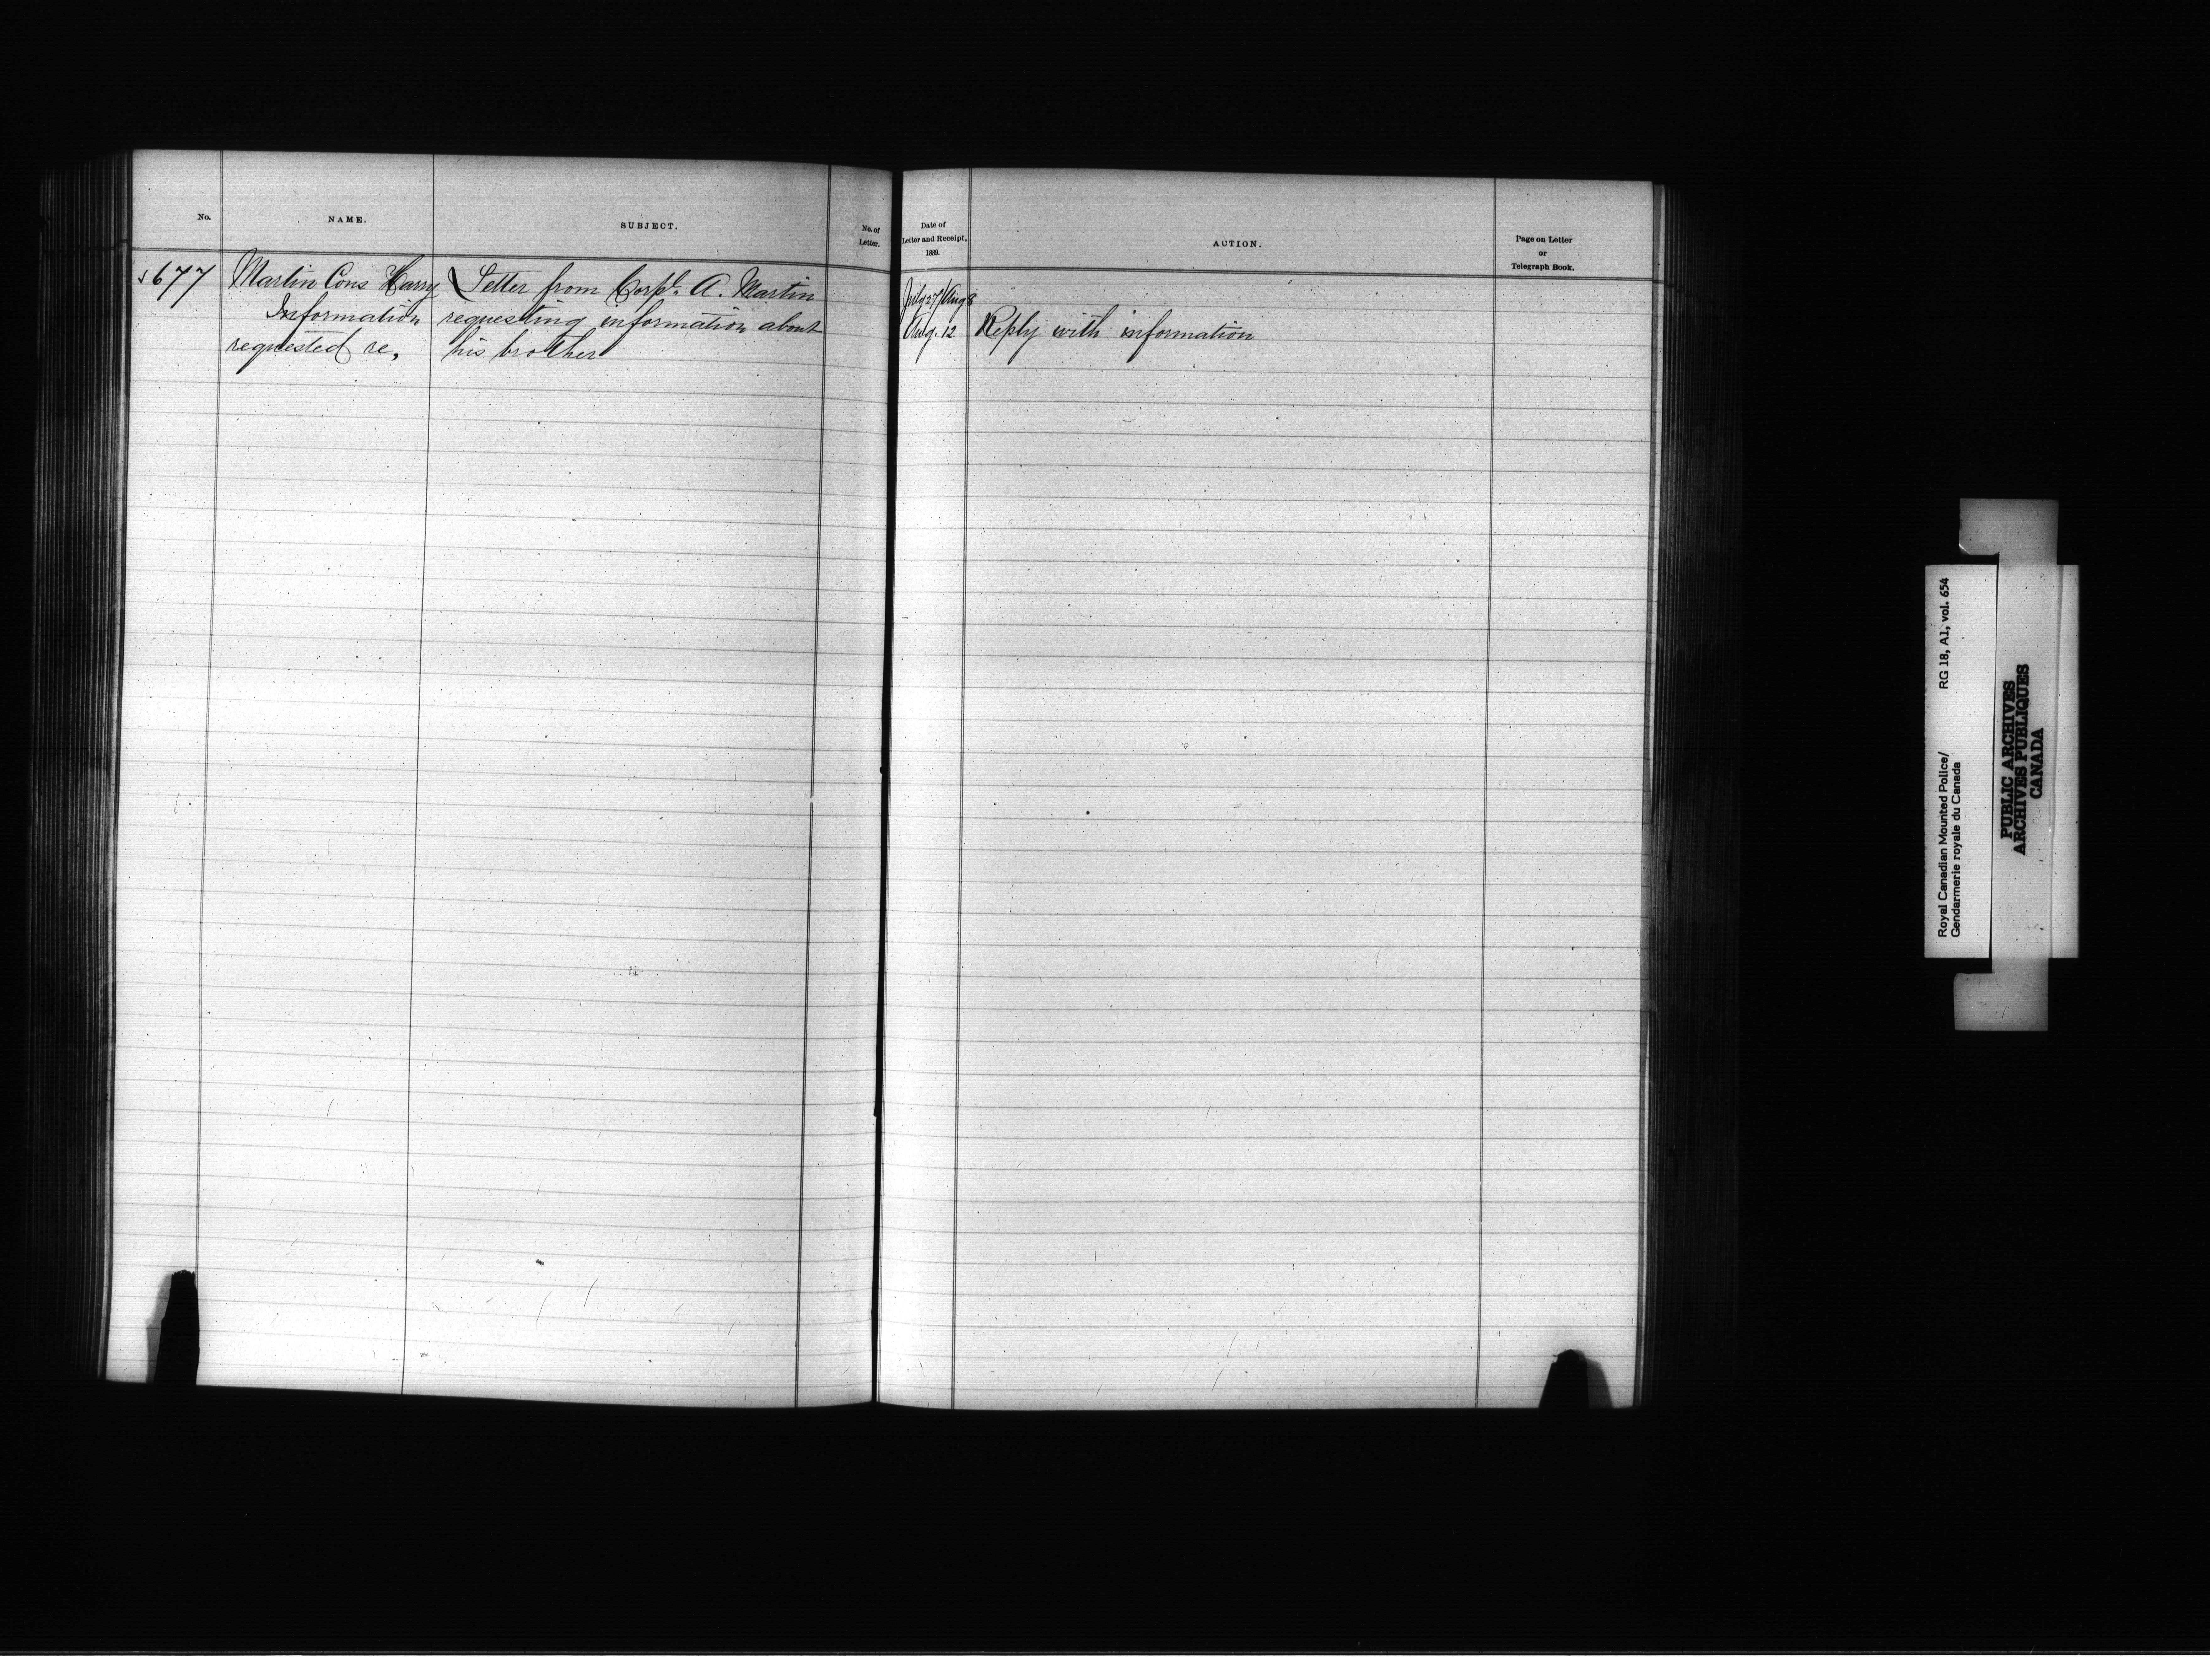 No.
NAME.
SUBJECT.
No. of
Letter.
677
Martin Cons Harry
Information
requested re,
Letter from Corpl. A. Martin
requesting information about
his brother
Date of
Letter and Receipt,
1889.
ACTION.
Page on Letter
or
Telegraph Book.
July 27/Aug 8
Aug. 12 Reply with information
Royal Canadian Mounted Police/ RG 18, A1, vol. 654
Gendarmerie royale du Canada
PUBLIC ARCHIVES
ARCHIVES PUBLIQUES
CANADA